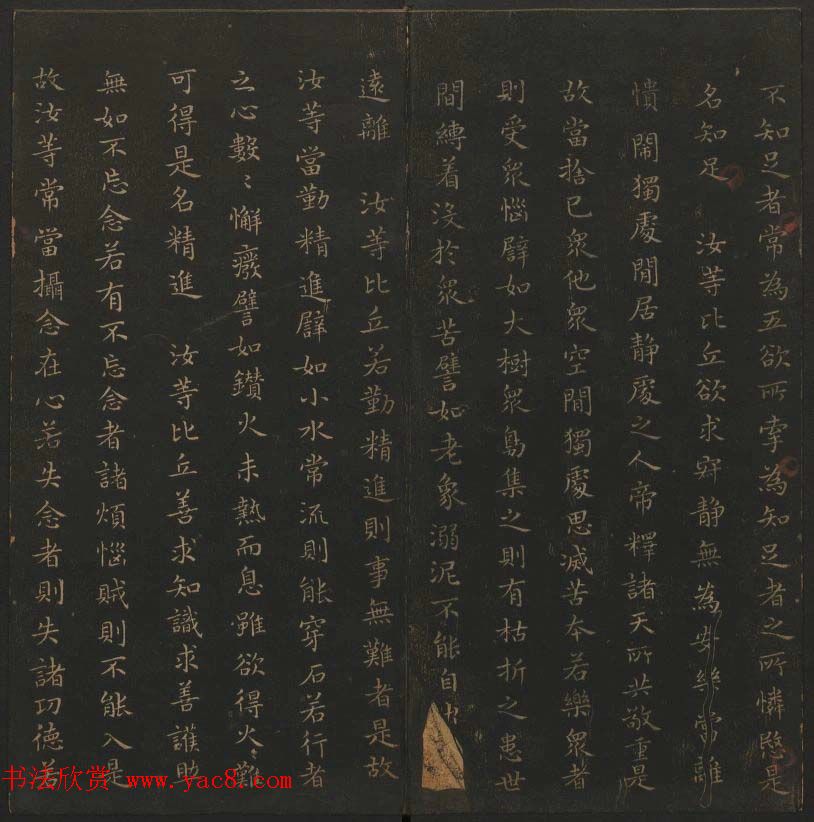 不知足者常為五欲所牽為知足者之所憐愍是
名知足 汝等比丘欲求寂静無為安樂當離
憒閙獨處閒居静處之人帝釋諸天所共敬重是
故當捨己衆他衆空閒獨處思滅苦本若樂衆者
則受衆惱譬如大樹衆鳥集之則有枯折之患世
間縛着沒於衆苦譬如老象溺泥不能自出
遠離 汝等比丘若勤精進則事無難者是故
汝等當勤精進譬如小水常流則能穿石若行者
之心數〻懈癈譬如鑽火未熱而息雖欲得火〻難
可得是名精進 汝等比丘善求知識求善護助
無如不忘念若有不忘念者諸煩惱賊則不能入是
故汝等常當攝念在心若失念者則失諸功德若
书法欣赏 www.yac8.com